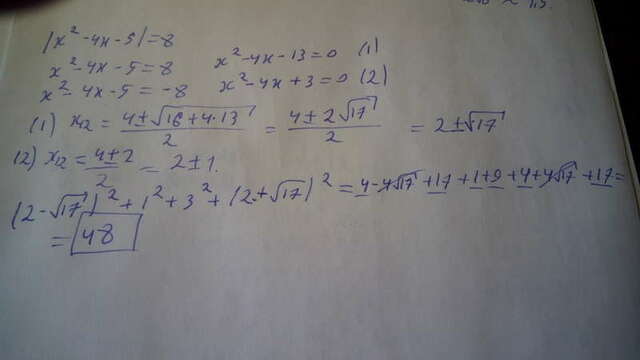 |x²-4x-5|=8
x²-4x-5=8 x²-4x-13=0 (1)
x²-4x-5=-8 x²-4x+3=0 (2)
(1) x₁₂ = (4±√(16+4·13))/2 = (4±2√17)/2 = 2±√17
(2) x₁₂ = (4±2)/2 = 2±1.
(2-√17)²+1²+3²+(2+√17)² = 4-4√17+17+1+9+4+4√17+17=
= 48